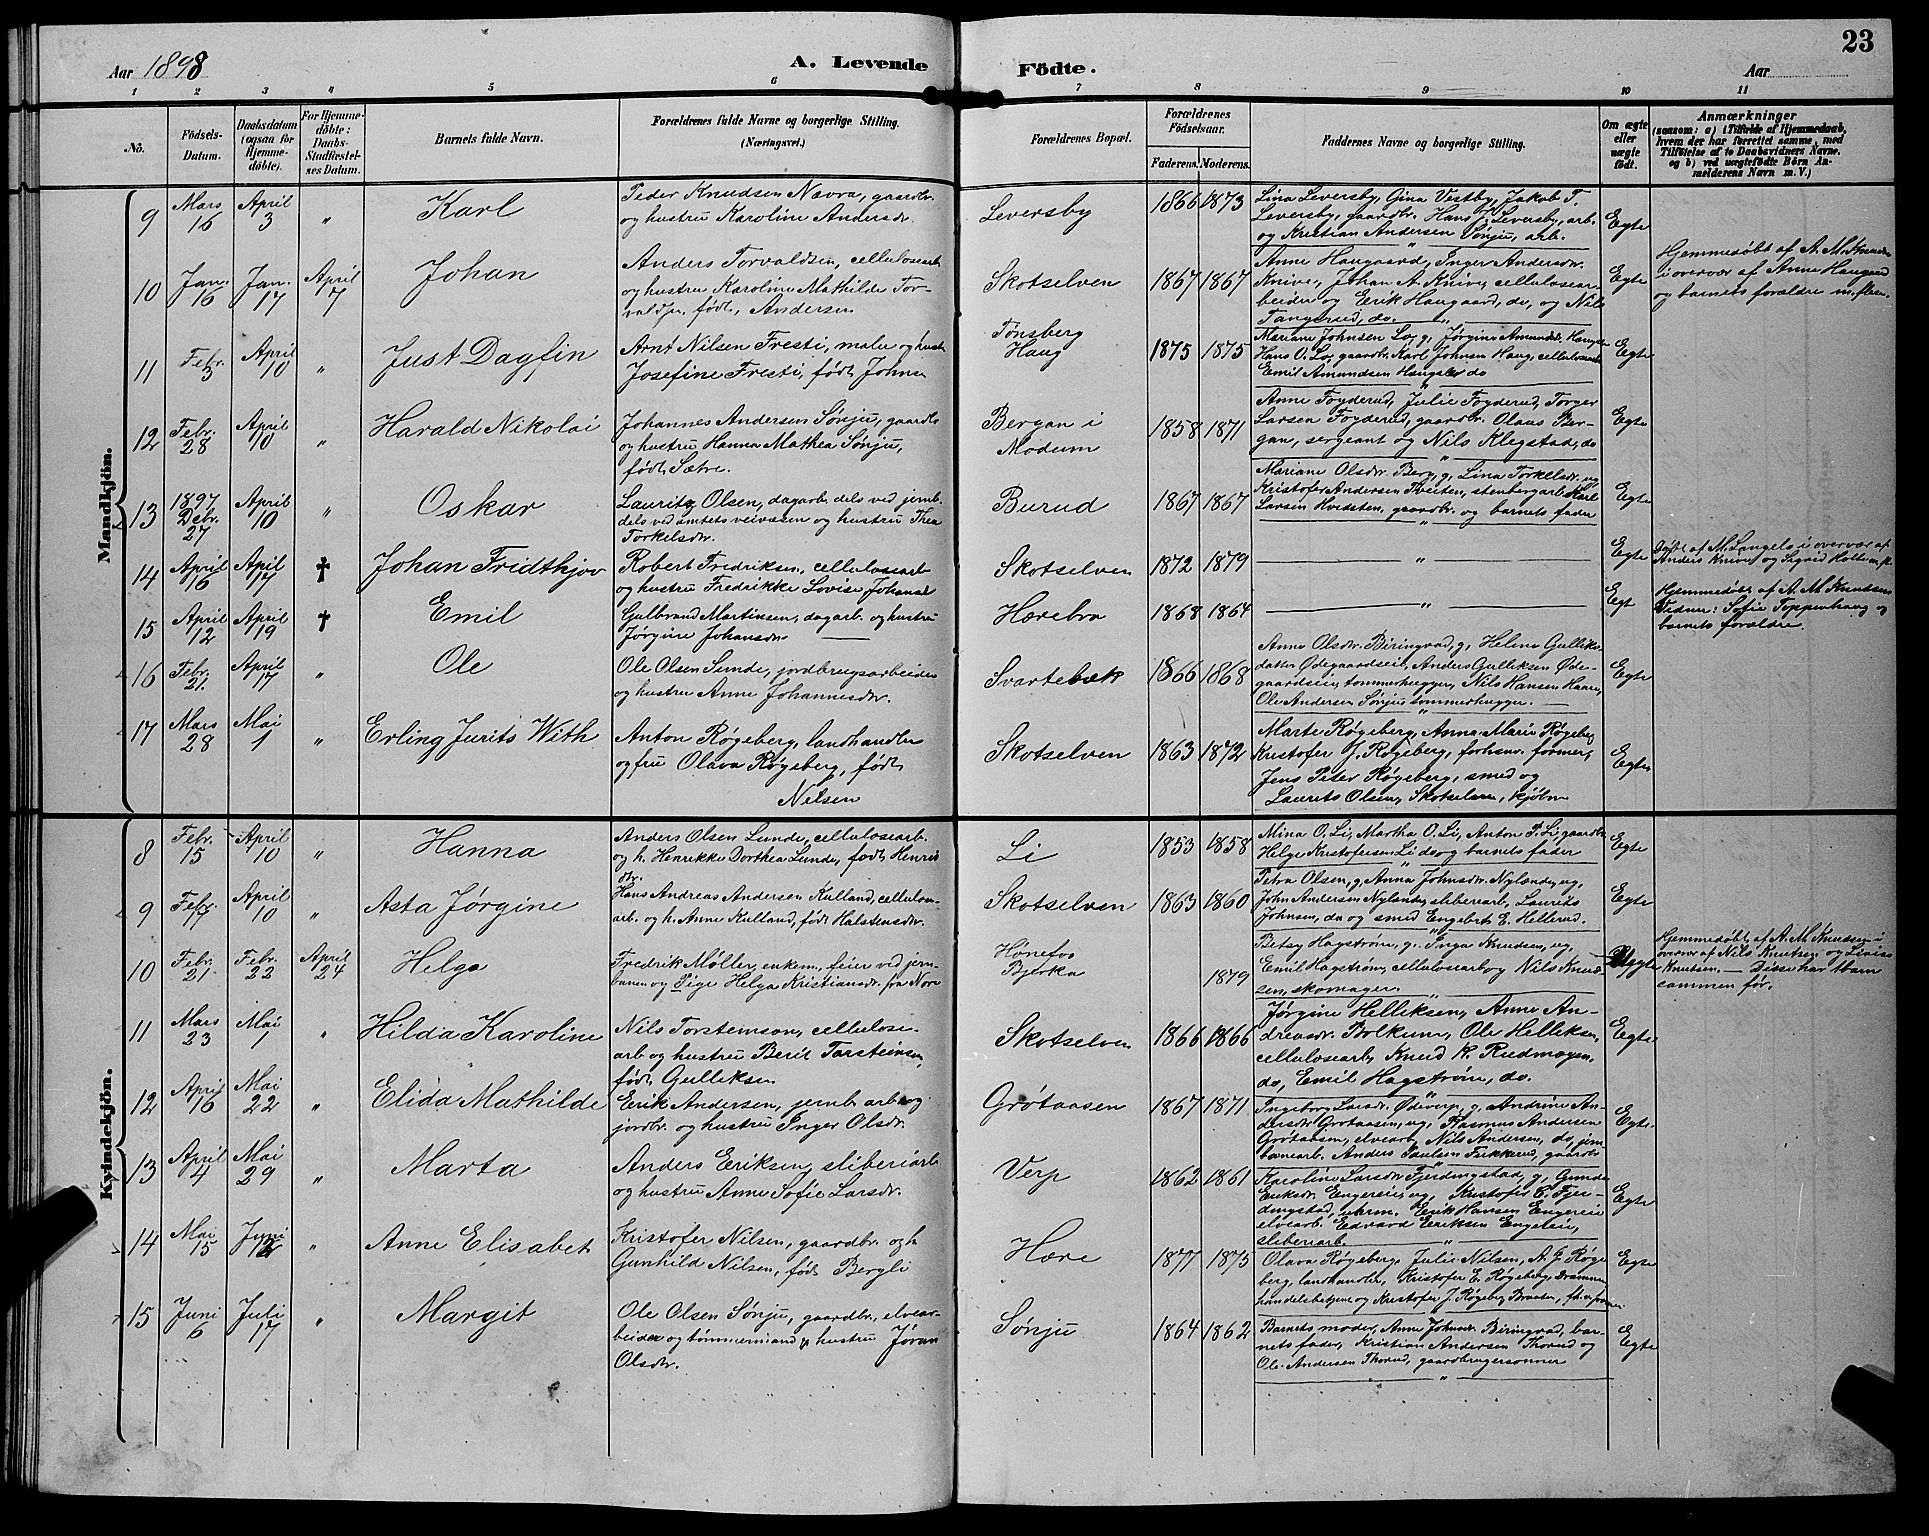 23
Aar 1898
A. Levende Födte.
Aar
1 2 3 4 5 6 7 8 9 10 11
No.
Födsels-Datum.
Daabsdatum (ogsaa for Hjemme-döbte).
For Hjemme-döbte: Daabs-Stadfæstel-ses Datum.
Barnets fulde Navn.
Forældrenes fulde Navne og borgerlige Stilling. (Næringsvei.)
Forældrenes Bopæl.
Forældrenes Födselsaar.
Faderens. Moderens.
Faddernes Navne og borgerlige Stilling.
Om ægte eller uægte födt.
Anmærkninger
(saasom: a) i Tilfælde af Hjemmedaab,
hvem der har forrettet samme, med
Tilföielse af to Daabsvidners Navne,
og b) ved uægtefödte Börn An-
melderens Navn m. V.)
Mandkjön.
9 Mars 16 April 3 " Karl
Peder Knudsen Nævra, gaardbr.
og hustru Karoline Andersdr.
Leversby 1866 1873
Lina Leversby, Gina Vestby, Jakob T.
Leversby, gaardbr. Hans J. Leversby, arb.
og Kristian Andersen Sønju, arb.
Egte
10 Jan. 16 Jan. 17 April 7 Johan
Anders Torvaldsen, cellulosearb.
og hustru Karoline Mathilde Tor-
valds., født Andersen
Skotselven 1867 1867
Anne Haugaard, Inger Andersdr.
Knive, Johan A. Knive, cellulosear-
beider og Erik Haugaard, do, og Nils
Tangerud, do.
Egte
Hjemmedøbt af A. M. Knudsen
i overvær af Anne Haugaard
og barnets forældre m. flere.
11 Febr. 3 April 10 " Just Dagfin
Arnt Nilsen Fresti, maler og hustr.
Josefine Fresti, født Johns.
Tønsberg
Haug 1875 1875
Mariane Johnsen Lo, g, Jørgine Amunds.
Hans O. Lo, gaardbr. Karl Johnsen Haug, cellulosearb.
Emil Amundsen do
Egte
12 Febr. 28 April 10 " Harald Nikolai
Johannes Andersen Sønju, gaardb
og hustru Hanna Mathea Sønju,
født Sætre.
Bergan i
Modum 1858 1871
Anne Foyderud, Julie Foyderud, Torger
Larsen Foyderud, gaardbr. Olaus Ber-
gan, sergeant og Nils Klegstad, do
Egte
13 1897 Debr. 27 April 10 " Oskar
Lauritz Olsen, dagarb. dels ved jernb.
dels ved amtets veivæsen og hustru Thea
Torkelsdr.
Burud 1867 1867
Mariane Olsdr. Berg, g, Lina Torkelsdr. ug
Kristofer Andersen Tveiten, stenbergarb. Karl
Larsen Hvidsten, gaardbr. og barnets fader
Egte
14 April 16 April 17 † Johan Fridthjov
Robert Fredriksen, cellulosearb
og hustru Fredrikke Lovise Johanse
Skotselven 1872 1879
"
Egte
Døbt af M. Langels i overvær af
Anders Knive og Sigrid Holte
15 April 12 April 19 † Emil
Gulbrand Martinsen, dagarb. og hustru
Jørgine Johansdr.
Hærebro 1868 1864
"
Egt
Hjemmedøbt af A. M. Knutsen
Vidner: Sofie Toppenhaug og
barnets forældre.
16 Febr. 21. April 17 " Ole
Ole Olsen Sunde, jordbrugsarbeider
og hustru Anne Johannesdr.
Svartebæk 1866 1868
Anna Olsdr. Biringvad, g, Helene Gulliks-
datter Ødegaardseie, Anders Gulliksen Øde-
gaardseie, tømmerhugger, Nils Hansen Haare,
Ole Andersen Sønju, tømmerhugger.
Egte
17 Mars 28 Mai 1 " Erling Jurits With
Anton Røgeberg, landhandler
og fru Olava Røgeberg, født
Nilsen
Skotselven 1863 1872
Marte Røgeberg, Anne Marie Røgeberg
Kristofer J. Røgeberg, forhenv. former,
Jens Peter Røgeberg, smed og
Laurits Olsen, Skotselven, kjøbm
Egte
Kvindekjön.
8 Febr. 15 April 10 " Hanna
Anders Olsen Lunde, cellulosearb.
og h. Henrikke Dorthea Lunde, født Henriks
dr.
Li 1853 1858
Mina O. Li, Martha O. Li, Anton P. Li, gaardbr.
Helge Kristofersen Li do og barnets fader
Egte
9 Febr. 17 April 10 " Asta Jørgine
Hans Andreas Andersen Kulland, cellulose-
arb. og h. Anne Kulland, født Halstensdr.
Skotselven 1863 1860
Petra Olsen, g, Anna Johnsdr. Nylænde, ug,
John Andersen Nylænde, sliberiarb, Laurits
Johnsen, do og smed Engebret E. Hellerud.
Egte
10 Febr. 21 Febr. 22 April 24 Helga
Fredrik Møller, enkem., feier ved jern-
banen og Pige Helga Kristiansdr. fra Nore
Hønefos
Bjerka 1879
Betsy Hagstrøm, g. Inga Knudsen, ug,
Emil Hagstrøm, cellulosearb og Nils Knud-
sen, skomager.
Uegte
Hjemmedøbt af A. M. Knudsen i
overvær af Nils Knutsen og Lovise
Knutsen. — Disse har barn
sammen før.
11 Mars 23 Mai 1 " Hilda Karoline
Nils Torsteinson, cellulose-
arb og hustru Berit Torsteinsen,
født Gulliksen
Skotselven 1866 1866
Jørgine Helliksen, Anne An-
dreasdr. Bolkum, Ole Helliksen,
cellulosearb, Knud K. Rudmoyen,
do, Emil Hagstrøm, do.
Egte
12 April 16 Mai 22 " Elida Mathilde
Erik Andersen, jernb. arb og
jordbr. og hustru Inger Olsdr.
Grøtaasen 1867 1871
Ingeborg Larsdr. Ødeverp, g, Andrine An-
dersdr. Grøtaasen, ug, Rasmus Andersen
Grøtaasen, elvearb, Nils Andersen, do, jern-
banearb. Anders Paulsen Fukkerud, gaardb
Egte.
13 April 4 Mai 29 " Marta
Anders Eriksen, sliberiarb
og hustru Anne Sofie Larsdr.
Verp 1862 1861
Karoline Larsdr. Fjerdingstad, g, Gunda
Eriksdr. Engereie, ug, Kristofer C. Fjer-
dingstad, urhm. Erik Hansen Engereie
elvearb. Edvard Eriksen Engeleie,
sliberiarb.
Egte
14 Mai 15 Juni 12 " Anne Elisabet
Kristofer Nilsen, gaardbr. og h
Gunhild Nilsen, født Bergli
Hære 1877 1875
Olava Røgeberg, Julie Nilsen, A. G. Røge
berg, landhandler, Kristofer E. Røgeberg, Drammen
handelsbetjent og Kristofer J. Røgeberg Braaten,
Egte
15 Juni 6 Juli 17 " Margit
Ole Olsen Sønju, gaardbr., elvear-
beider og tømmermand & hustru Jøran
Olsdr.
Sønju 1864 1862
Barnets moder, Anne Johnsdr. Biringvad, bar-
nets fader, Kristian Andersen Thorud og
Ole Andersen Thorud, gaardbrugersønner
Egte